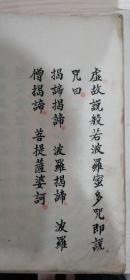 虛故說般若波羅蜜多咒即說
咒曰
揭諦揭諦　波羅揭諦　波羅
僧揭諦　菩提薩婆訶